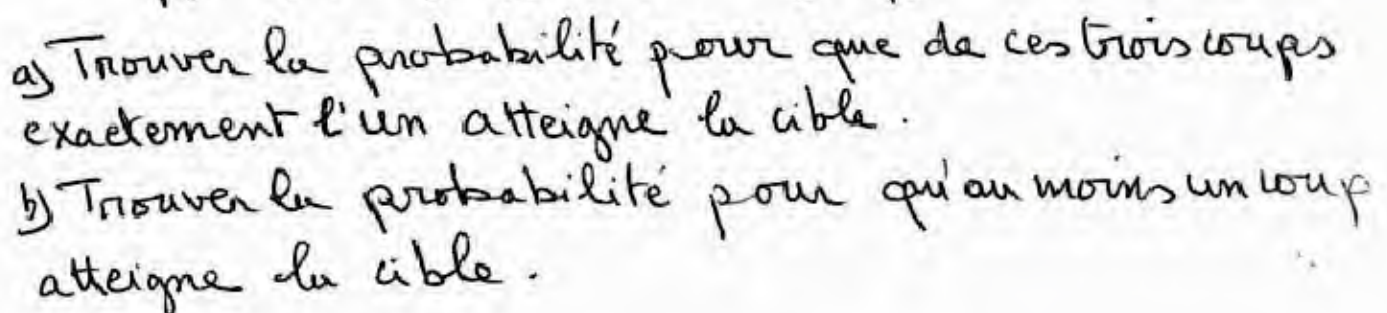 a) Trouver la probabilité pour que de ces trois coups
exactement l'un atteigne la cible.
b) Trouver la probabilité pour qu'au moins un coup
atteigne la cible.